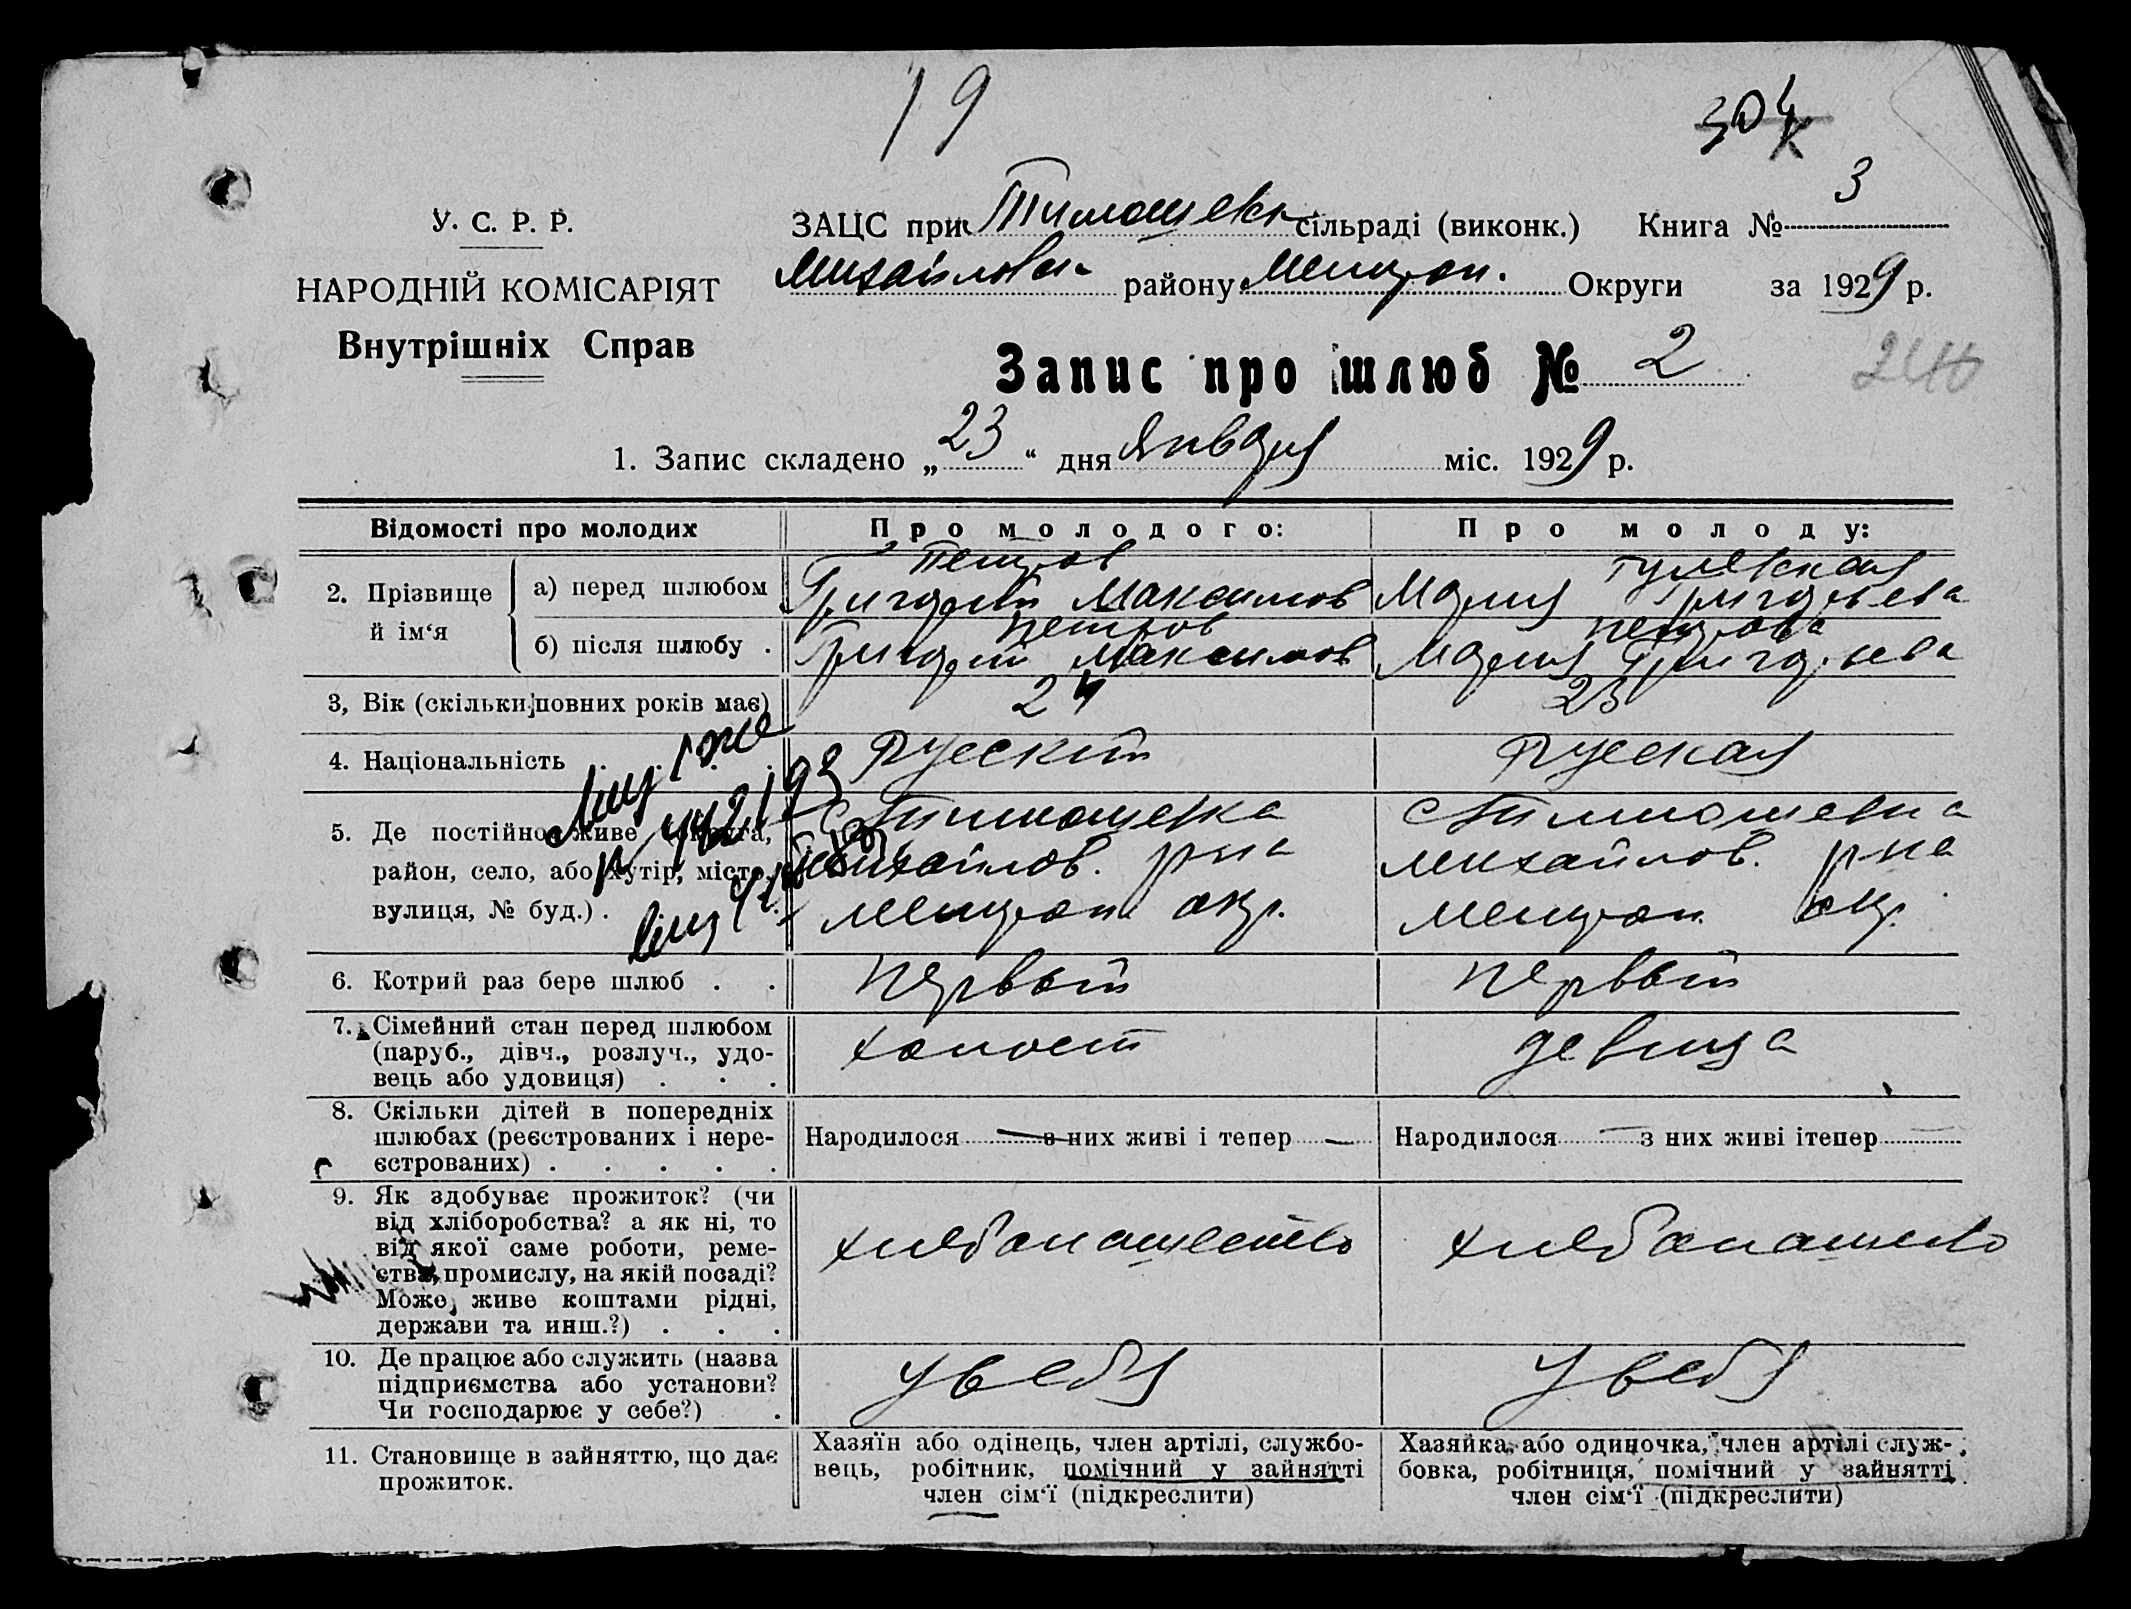 19
304
У. С. Р. Р.
НАРОДНІЙ КОМІСАРІЯТ
Внутрішніх Справ
ЗАЦС при Тимошевк сільраді (виконк.) Книга № 3
Михайловск району Мелитоп. Округи за 1929 р.
Запис про шлюб № 2
240
1. Запис складено „23“ дня Января міс. 1929 р.
Відомості про молодих
Про молодого:
Про молоду:
2. Прізвище й ім‘я
а) перед шлюбом
Петров
Григорий Максимов
Гулевская
Мария Григорьева
б) після шлюбу .
Петров
Григорий Максимов
Петрова
Мария Григорьева
3, Вік (скільки повних років має)
24
23
4. Національність . . .
Руский
Руская
5. Де постійно живе (округа,
район, село, або хутір, місто,
вулиця, № буд.) .
с Тимошевка
Михайлов. р-на
Мелитоп. окр.
с Тимошевка
Михайлов. р-на
Мелитоп. окр.
6. Котрий раз бере шлюб . .
первый
первый
7. Сімейний стан перед шлюбом
(паруб., дівч., розлуч., удо-
вець або удовиця) . . .
холост
девица
8. Скільки дітей в попередніх
шлюбах (реєстрованих і нере-
єстрованих) . . . . .
Народилося — з них живі і тепер —
Народилося — з них живі ітепер —
9. Як здобуває прожиток? (чи
від хліборобства? а як ні, то
від якої саме роботи, реме-
ства, промислу, на якій посаді?
Може живе коштами рідні,
держави та инш.?) . . .
хлебопашество
хлебопашево
10. Де працює або служить (назва
підприємства або установи?
Чи господарює у себе?) .
у себя
у себя
11. Становище в зайняттю, що дає
прожиток.
Хазяїн або одінець, член артілі, службо-
вець, робітник, помічний у зайнятті
член сім‘ї (підкреслити)
Хазяйка або одиночка, член артілі служ-
бовка, робітниця, помічний у зайнятті
член сім‘ї (підкреслити)